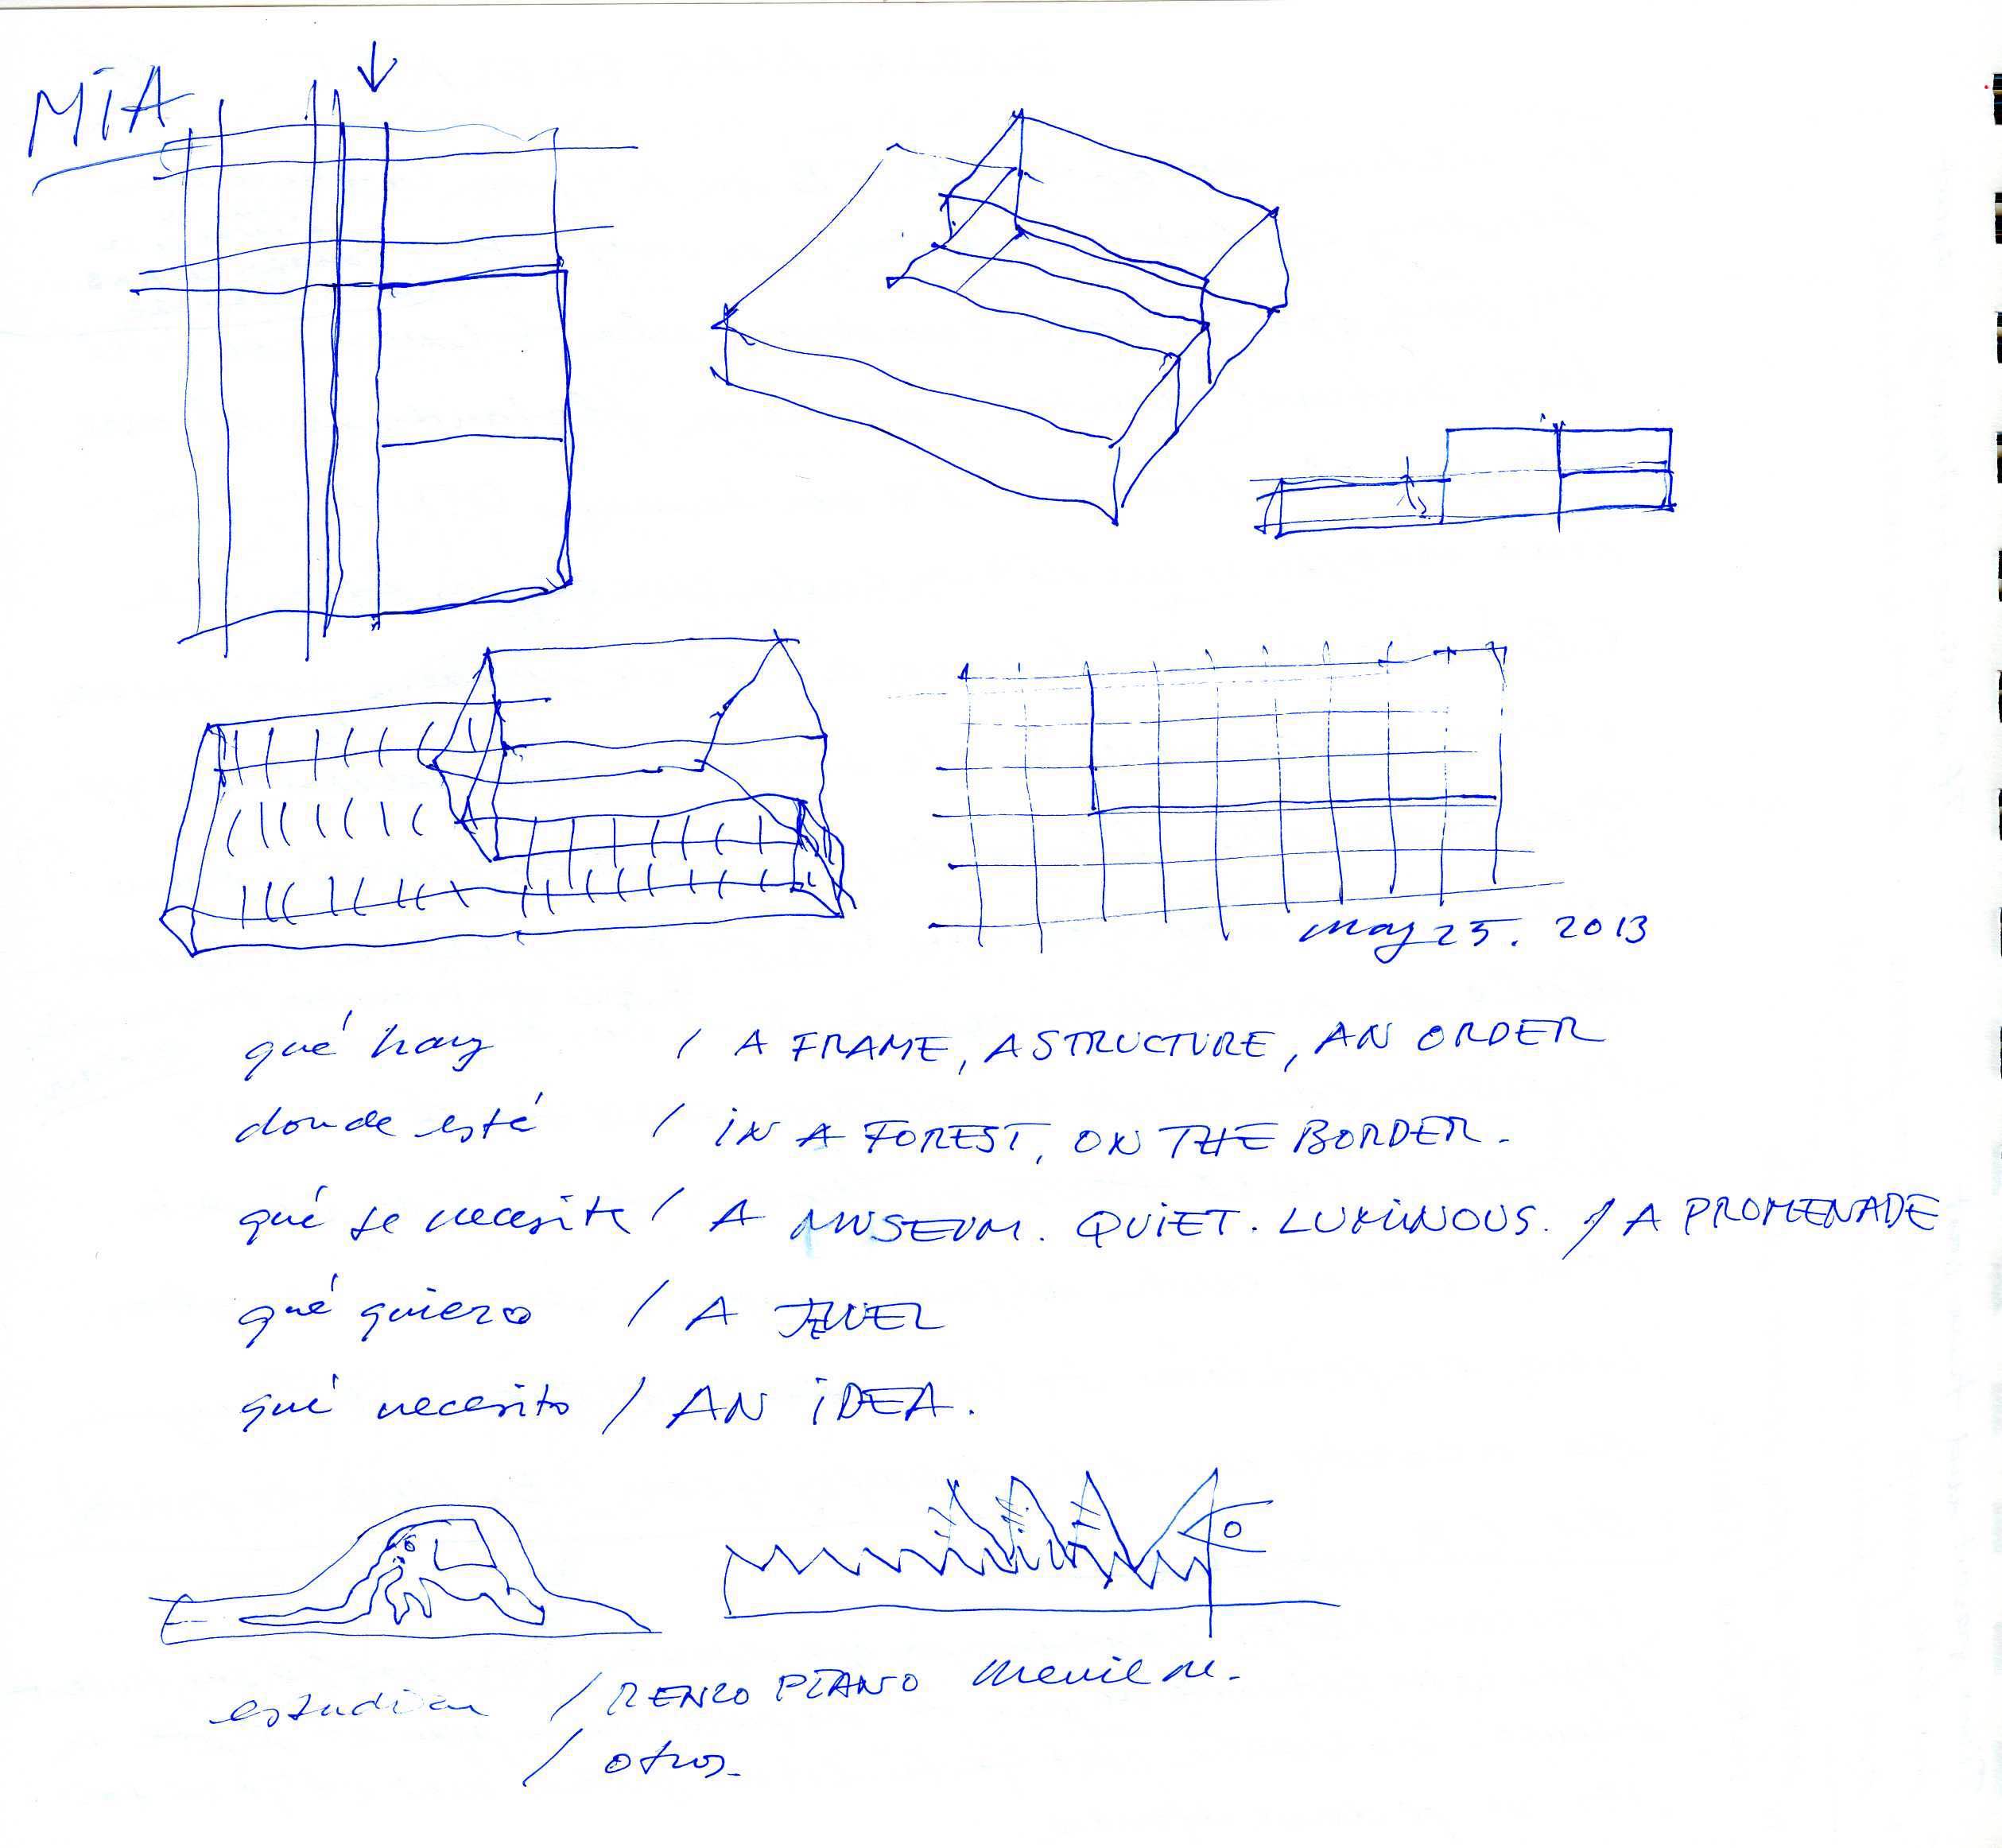 MiA
may 25. 2013
qué hay / A FRAME, A STRUCTURE, AN ORDER
donde está / iN A FOREST, ON THE BORDER.
qué se necesita / A MUSEUM. QUiET. LUMiNOUS. / A PROMENADE
qué quiero / A JEWEL
qué necesito / AN iDEA.
estudiar / RENZO PIANO Menil M.
/ otros.